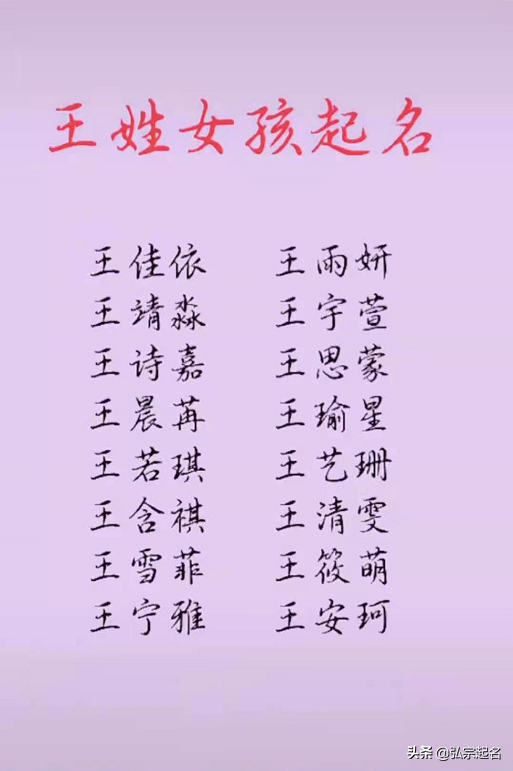 王姓女孩起名
王佳依 王雨妍
王靖淼 王宇萱
王诗嘉 王思蒙
王晨苒 王瑜星
王若琪 王艺珊
王含祺 王清雯
王雪菲 王筱萌
王宁雅 王安珂
头条 @弘宗起名